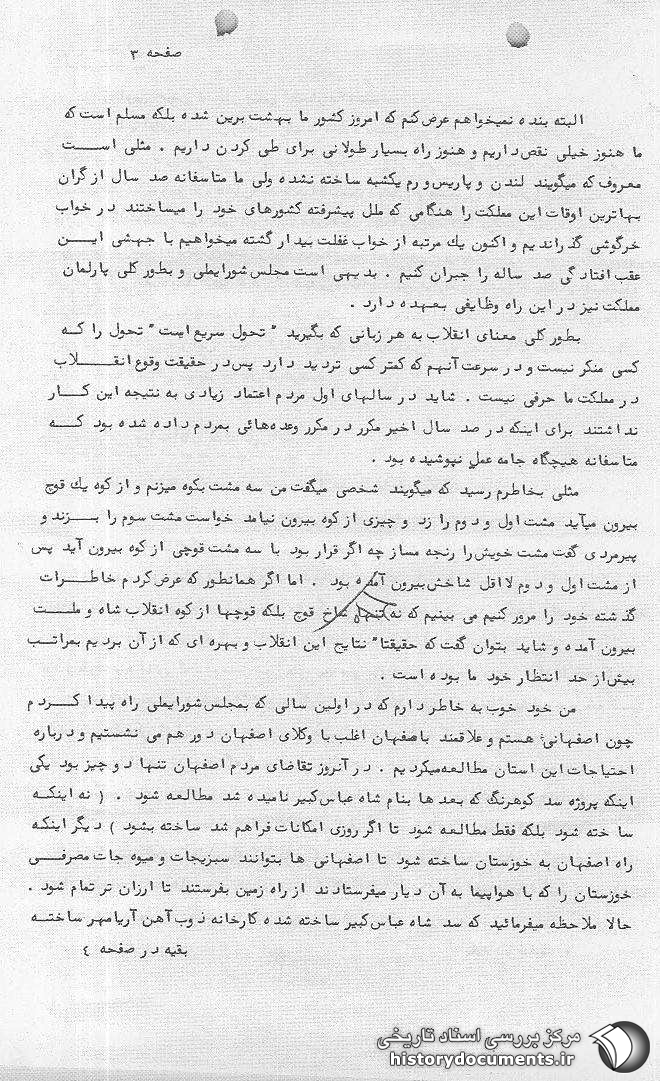 صفحه ۳
البته بنده نمیخواهم عرض کنم که امروز کشور ما بهشت برین شده بلکه مسلم است که
ما هنوز خیلی نقص داریم و هنوز راه بسیار طولانی برای طی کردن داریم . مثلی است
معروف که میگویند لندن و پاریس و رم یکشبه ساخته نشده ولی ما متاسفانه صد سال از گران
بهاترین اوقات این مملکت را هنگامی که ملل پیشرفته کشورهای خود را میساختند در خواب
خرگوشی گذراندیم و اکنون یك مرتبه از خواب غفلت بیدار گشته میخواهیم با جهشی این
عقب افتادگی صد ساله را جبران کنیم . بدیهی است مجلس شورایملی و بطور کلی پارلمان
مملکت نیز در این راه وظایفی بعهده دارد .
بطور کلی معنای انقلاب به هر زبانی که بگیرید " تحول سریع است " تحول را که
کسی منکر نیست و در سرعت آنهم که کمتر کسی تردید دارد پس در حقیقت وقوع انقلاب
در مملکت ما حرفی نیست . شاید در سالهای اول مردم اعتماد زیادی به نتیجه این کار
نداشتند برای اینکه در صد سال اخیر مکرر در مکرر وعده‌هائی بمردم داده شده بود که
متاسفانه هیچگاه جامه عمل نپوشیده بود .
مثلی بخاطرم رسید که میگویند شخصی میگفت من سه مشت بکوه میزنم و از کوه یك قوچ
بیرون میآید مشت اول و دوم را زد و چیزی از کوه بیرون نیامد خواست مشت سوم را بزند و
پیرمردی گفت مشت خویش را رنجه مساز چه اگر قرار بود با سه مشت قوچی از کوه بیرون آید پس
از مشت اول و دوم لااقل شاخش بیرون آمده بود . اما اگر همانطور که عرض کردم خاطرات
گذشته خود را مرور کنیم می بینیم که نه تنها شاخ قوچ بلکه قوچها از کوه انقلاب شاه و ملت
بیرون آمده و شاید بتوان گفت که حقیقتا" نتایج این انقلاب و بهره ای که از آن بردیم بمراتب
بیش از حد انتظار خود ما بوده است .
من خود خوب به خاطر دارم که در اولین سالی که بمجلس شورایملی راه پیدا کردم
چون اصفهانی هستم و علاقمند باصفهان اغلب با وکلای اصفهان دور هم می نشستیم و درباره
احتیاجات این استان مطالعه میکردیم . در آنروز تقاضای مردم اصفهان تنها دو چیز بود یکی
اینکه پروژه سد کوهرنگ که بعدها بنام شاه عباس کبیر نامیده شد مطالعه شود . ( نه اینکه
ساخته شود بلکه فقط مطالعه شود تا اگر روزی امکانات فراهم شد ساخته بشود ) دیگر اینکه
راه اصفهان به خوزستان ساخته شود تا اصفهانی ها بتوانند سبزیجات و میوه جات مصرفی
خوزستان را که با هواپیما به آن دیار میفرستادند از راه زمین بفرستند تا ارزان تر تمام شود .
حالا ملاحظه میفرمائید که سد شاه عباس کبیر ساخته شده کارخانه ذوب آهن آریامهر ساخته
بقیه در صفحه ٤
مرکز بررسی اسناد تاریخی
historydocuments.ir